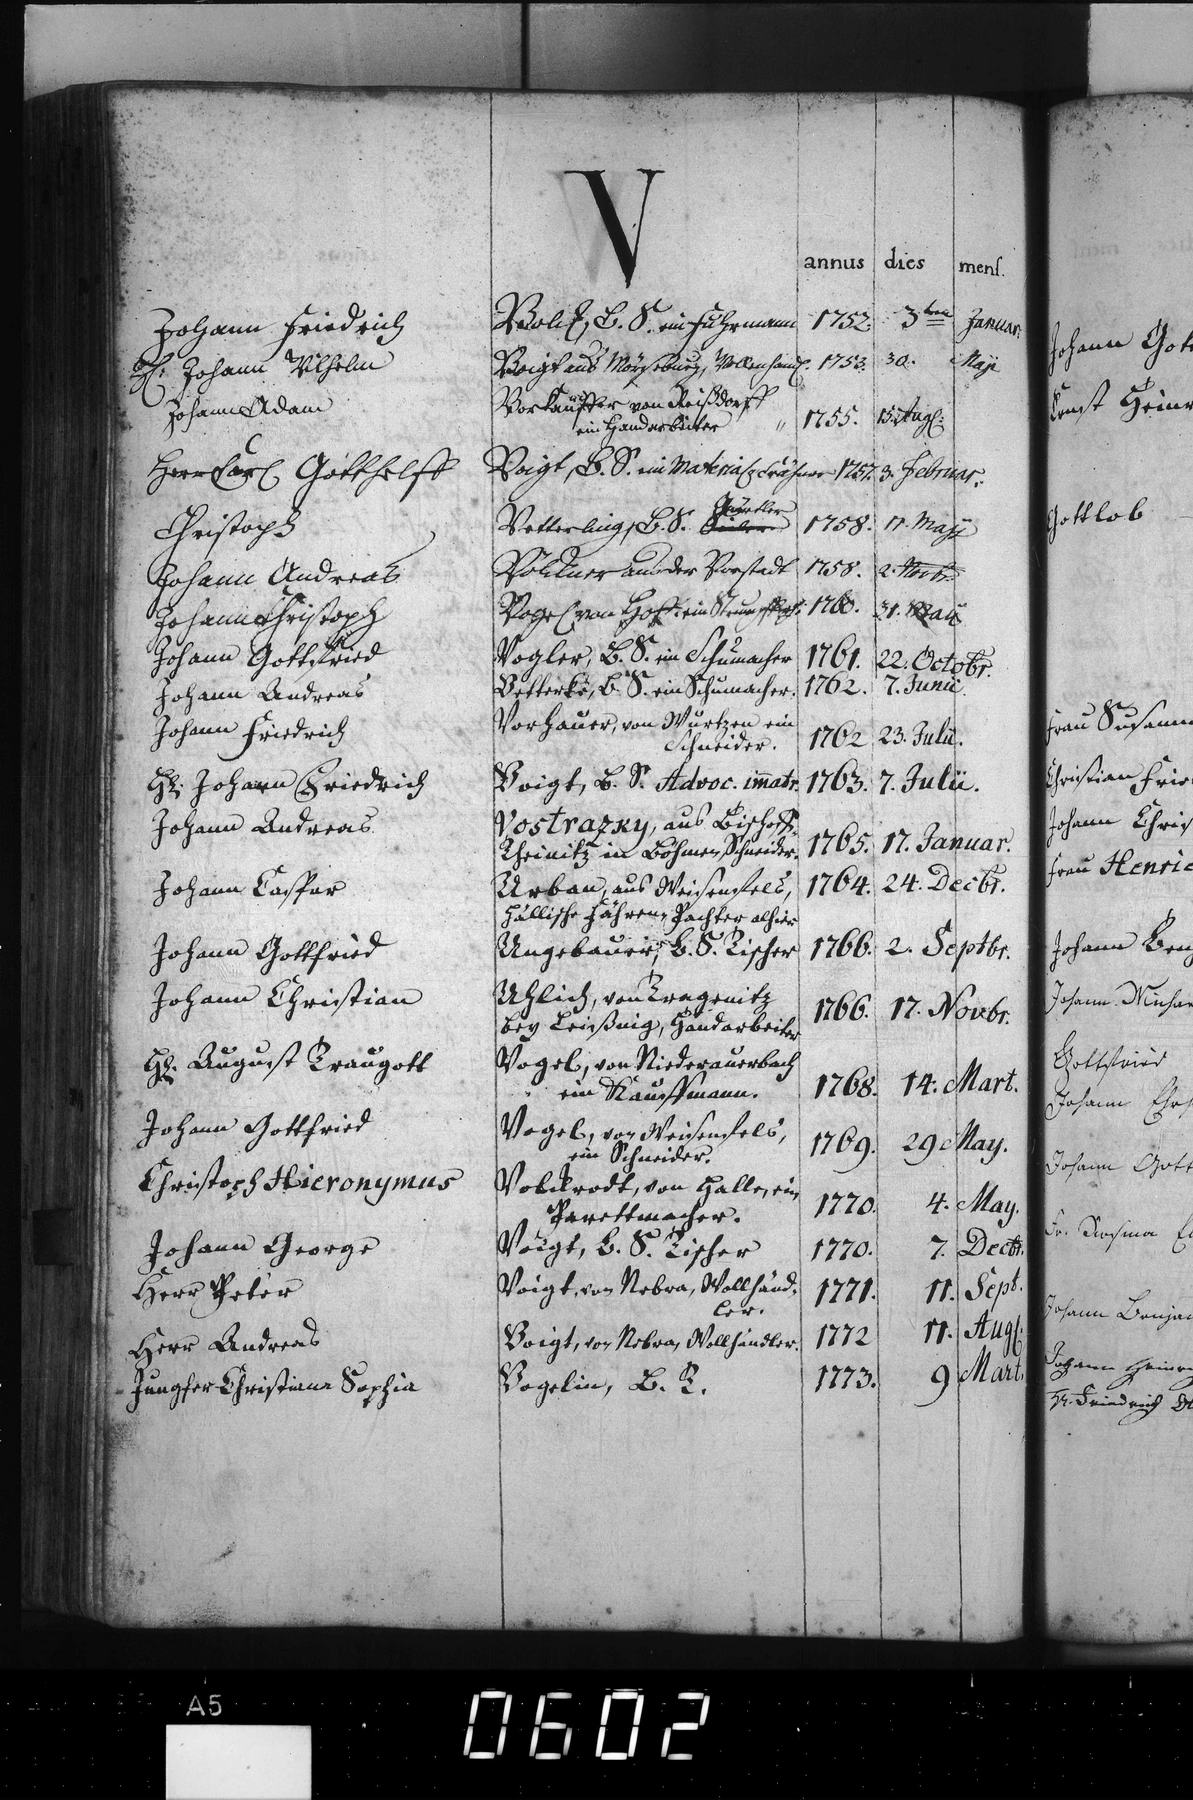 V
annus dies mens.
Johann Friedrich Voltz, B. S. ein Fuhrmann 1752. 3ten Januar.
H. Johann Wilhelm Voigt aus Mörseburg, 1753. 30. Maji
Johann Adam Vorkäuffer von Reißdorff
ein Handarbeiter 1755. 15. Aug.
Herr Carl Gotthelff Voigt, B. S. ein 1757. 3. Februar.
Christoph Vetterling, B. S. Gürtler 1758. 11. Maji
Johann Andreas Völckner aus der Vorstadt 1758. 2.
Johann Christoph Vogel von Hoff, ein 1760. 31. Maii
Johann Gottfried Vogler, B. S. ein Schumacher 1761. 22. Octobr.
Johann Andreas Vetterke, B. S. ein Schumacher. 1762. 7. Junii.
Johann Friedrich Vorhauer, von Wurtzen ein
Schneider. 1762 23. Julii.
H. Johann Friedrich Voigt, B. S. Advoc. immatr. 1763. 7. Julii.
Johann Andreas Vostrazky, aus Bischoff-
Theinitz in Böhmen, Schneider. 1765. 17. Januar.
Johann Casper Urban, aus Weisenfels, 1764. 24. Decbr.
Hällische Fähren-Pachter alhier
Johann Gottfried Ungebauer, B. S. Tischer 1766. 2. Septbr.
Johann Christian Uhlich, von Tragenitz
bey Leisnig, Handarbeiter 1766. 17. Novbr.
H. August Traugott Vogel, von Niederauerbach
ein Kauffmann. 1768. 14. Mart.
Johann Gottfried Vogel, von Weisenfels,
ein Schneider. 1769. 29 May.
Christoph Hieronymus Volckrodt, von Halle, ein
Parettmacher. 1770. 4. May.
Johann George Voigt, B. S. Tischer 1770. 7. Decbr.
Herr Peter Voigt, von Nebra, Wollhänd-
ler. 1771. 11. Sept.
Herr Andreas Voigt, von Nebra, Wollhändler. 1772 11. Aug.
Jungfer Christiana Sophia Vogelin, B. T. 1773. 9 Mart.
Johann
Ernst
Gottlob
Frau
Christian
Johann
Frau
Johann
Johann
Gottfried
Johann
Johann
Johann
Johann
H. Friedrich
A5
0602